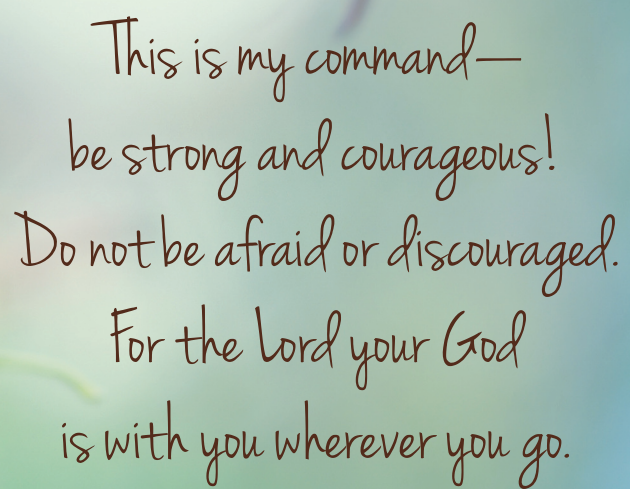 This is my command—
be strong and courageous!
Do not be afraid or discouraged.
For the Lord your God
is with you wherever you go.